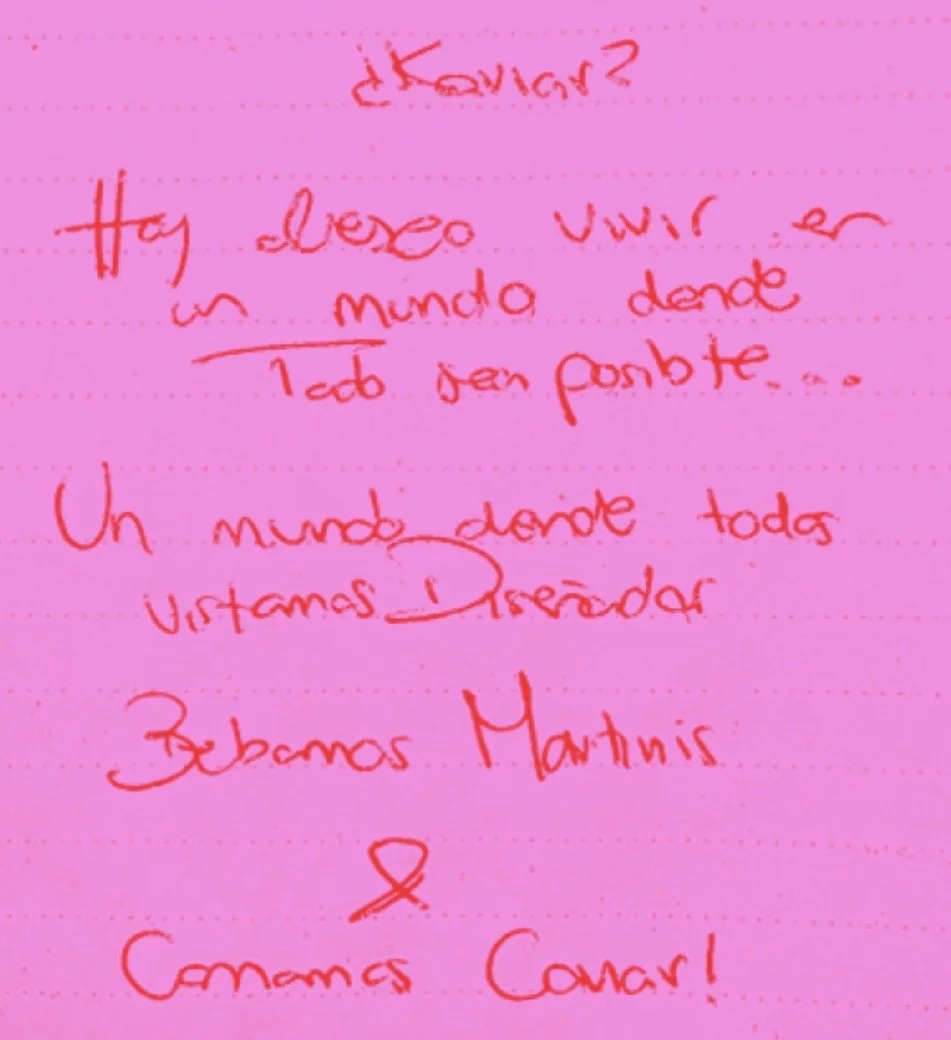 ¿Kaviar?
Hoy deseo vivir en
un mundo donde
Todo sea posible...
Un mundo donde todos
vistamos Diseñador
Bebamos Martinis
&
Comamos Caviar!